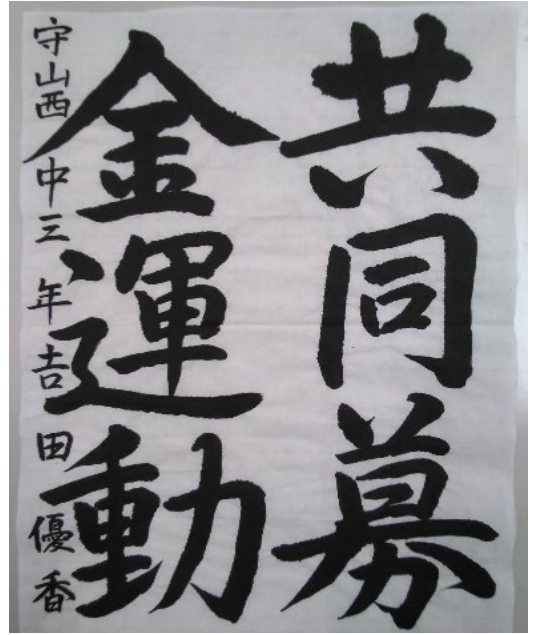 共同募
金運動
守山西中三年吉田優香